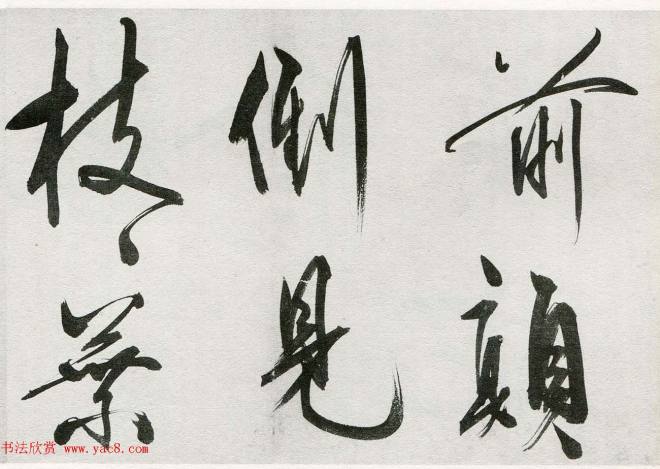 前顛
倒見
枝葉
书法欣赏 www.yac8.com